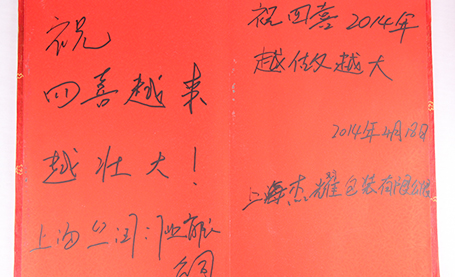 祝
四喜越来
越壮大！
上海
祝四喜2014年
越做越大
2014年4月18日
上海杰耀包装有限公司